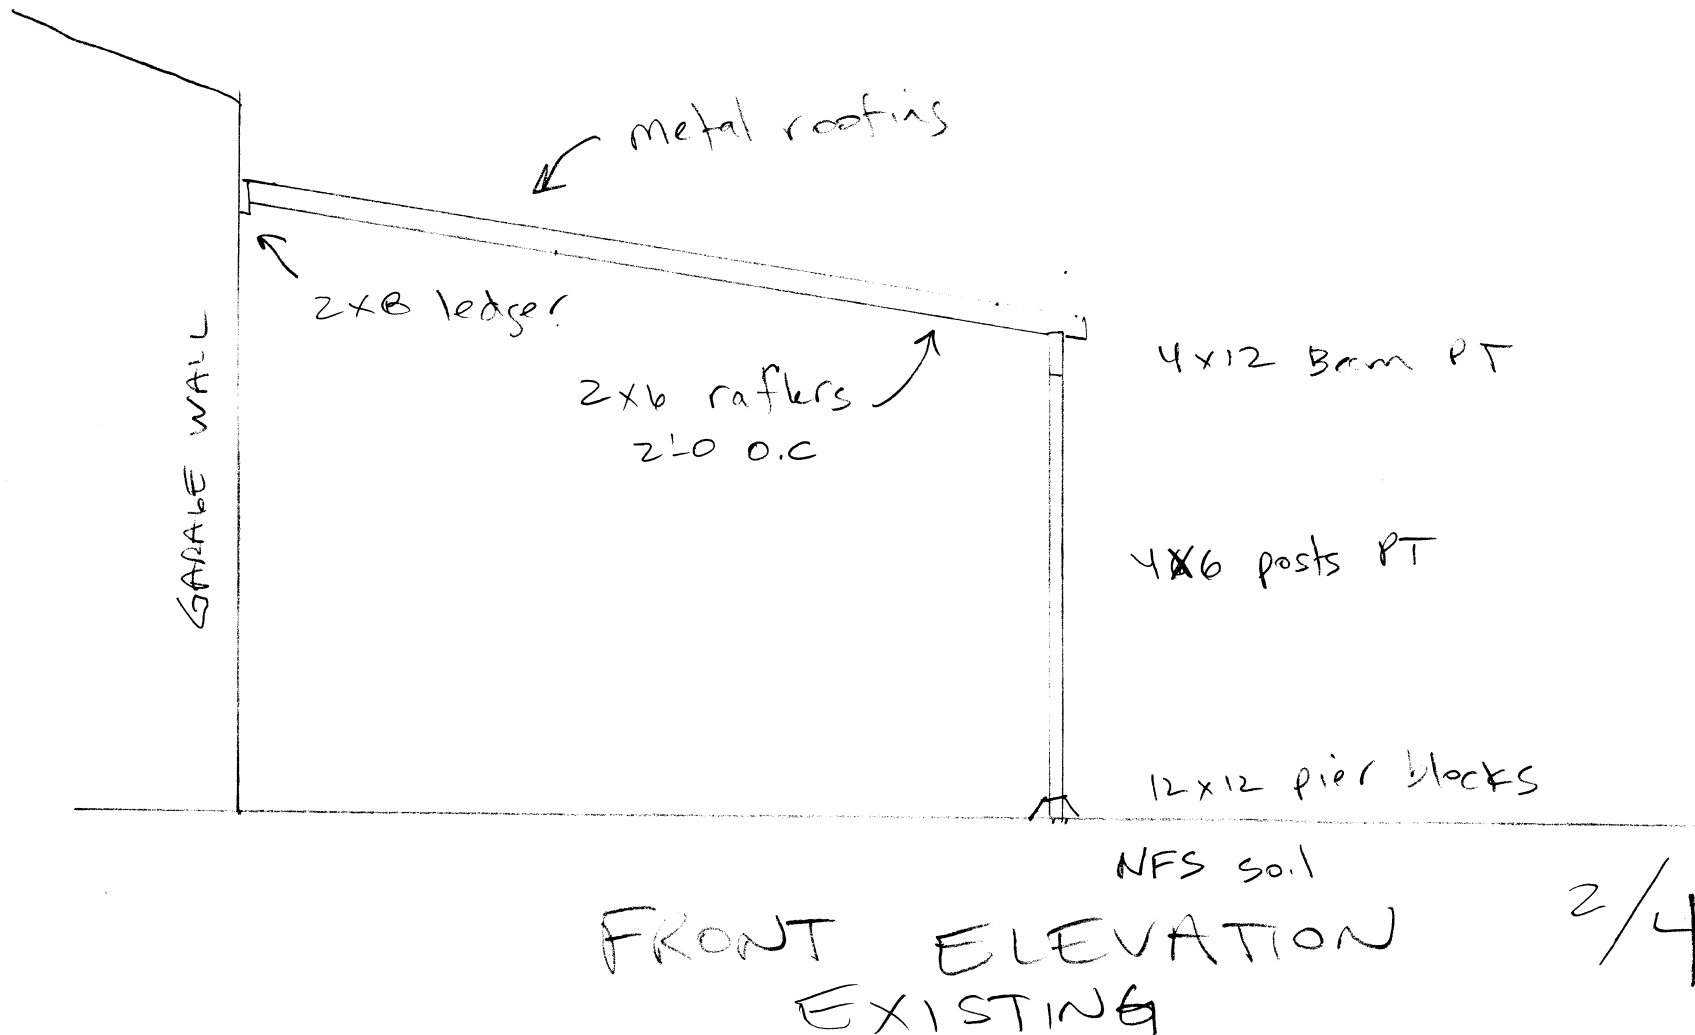 metal roofing
2x8 ledger
2x6 rafters
2'-0 O.C
GARAGE WALL
4x12 Beam PT
4x6 posts PT
12x12 pier blocks
NFS soil
FRONT ELEVATION
EXISTING
2/4